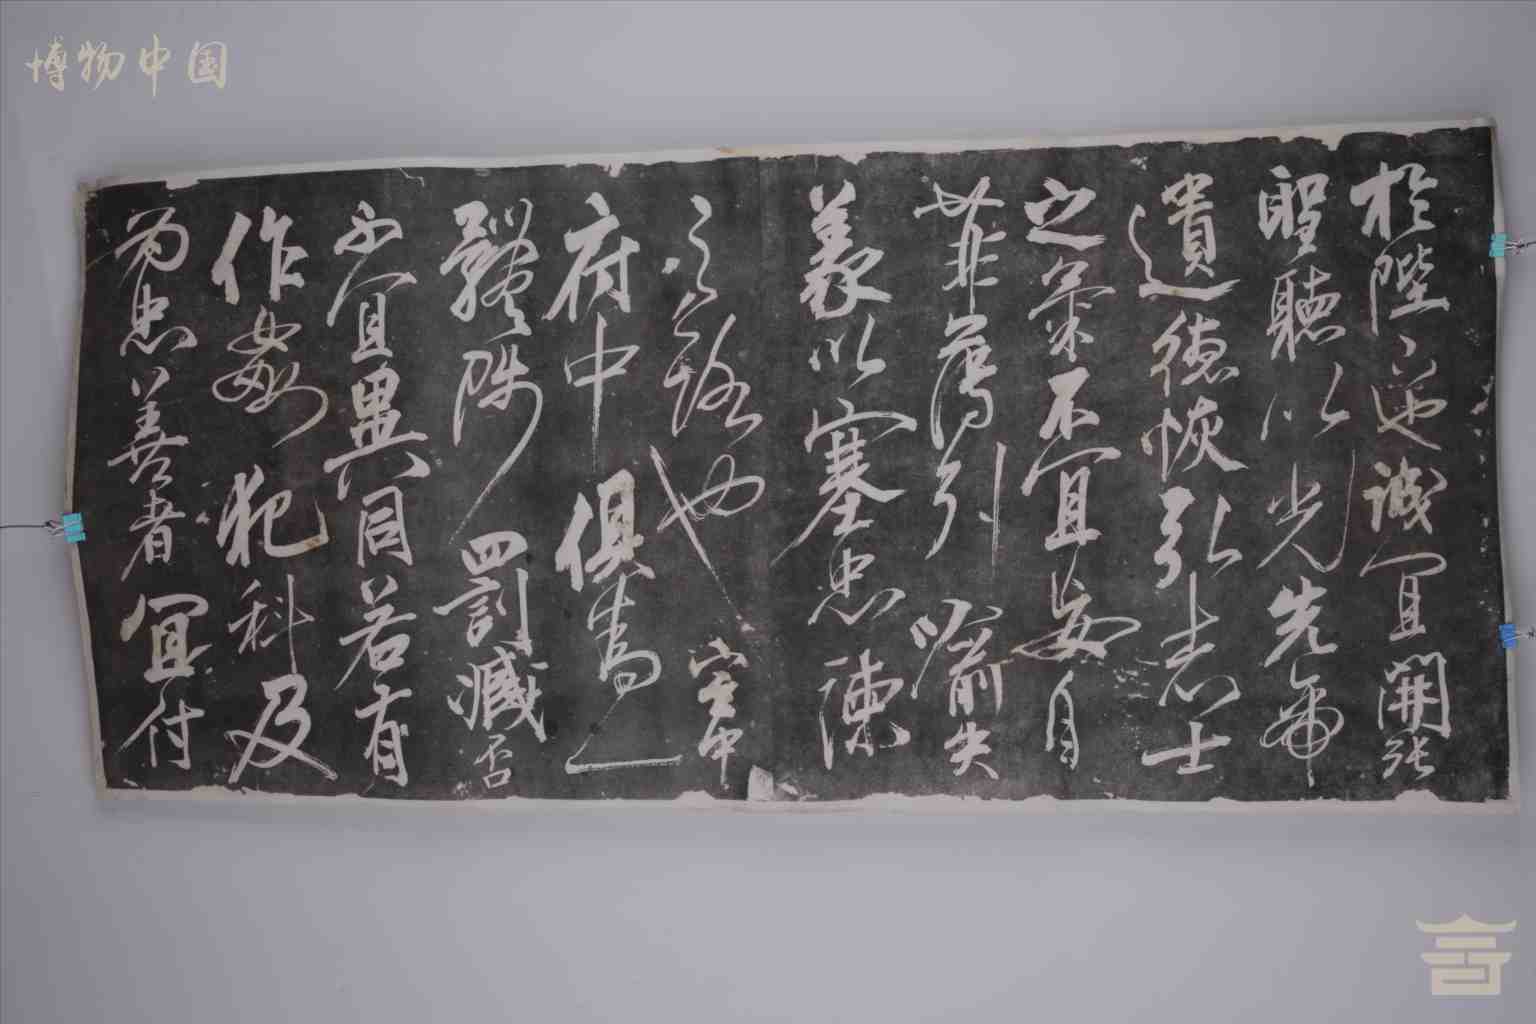 博物中国
於陛下
誠宜開張
聖聽以光先帝
遺德恢弘志士
之氣不宜妄自
菲薄引喻失
義以塞忠諫
之路也宮中
府中俱為一
體陟罰臧否
不宜異同若有
作姦犯科及
為忠善者宜付